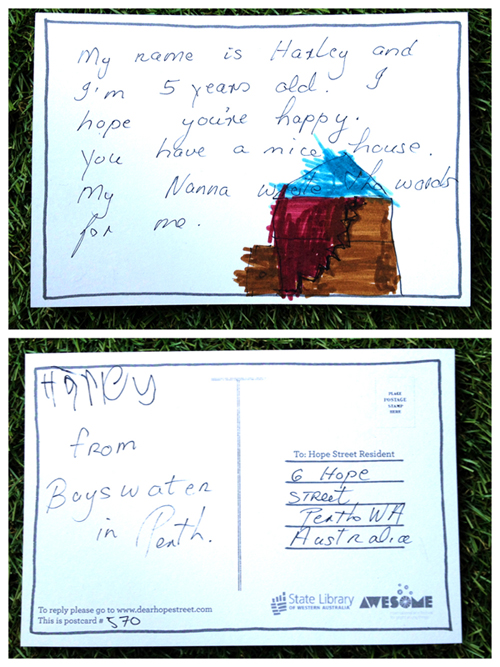 My name is Harley and
I'm 5 years old. I
hope you're happy.
You have a nice house.
My Nanna wrote the words
for me.
HARLEY
from
Bayswater
in Perth.
PLACE
POSTAGE
STAMP
HERE
To: Hope Street Resident
6 Hope
Street
Perth WA
Australia
To reply please go to www.dearhopestreet.com
This is postcard # 570
State Library
OF WESTERN AUSTRALIA
AWESOME